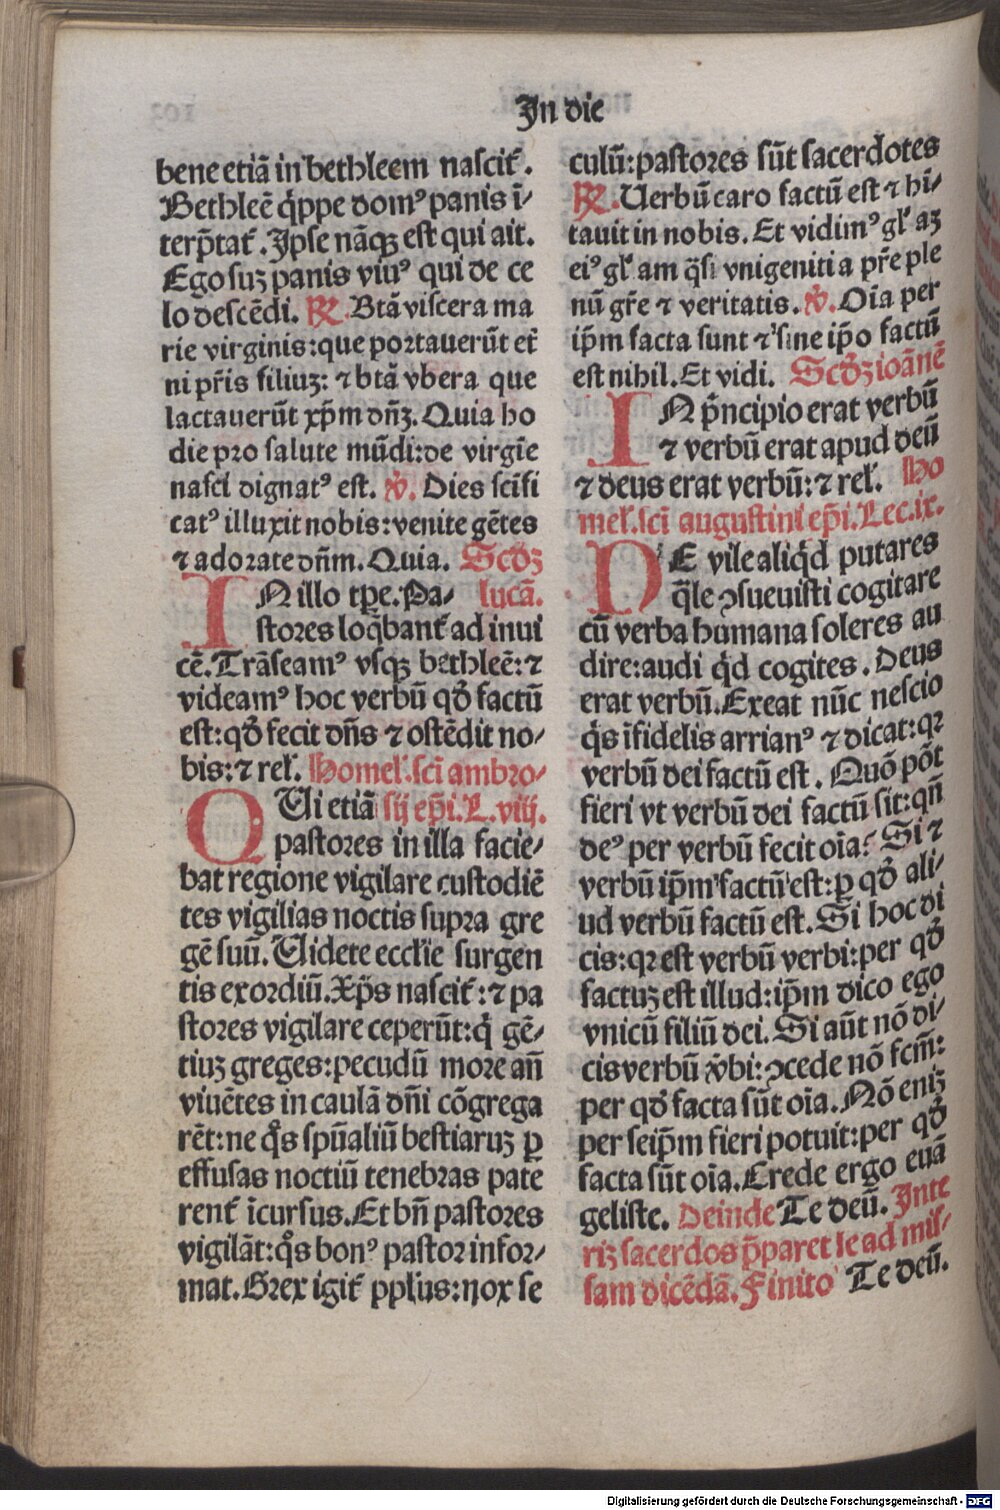 In die
bene etiā in bethleem naſcit᷑.
Bethleē q̇ppe domꝰ panis ī-
terp̄tat᷑. Ipſe nāqꝫ eſt qui ait.
Ego ſuꝫ panis viuꝰ qui de ce
lo deſcēdi. ℟. Btā viſcera ma
rie virginis: que portauerūt et᷑
ni pr̄is filiuꝫ: ⁊ btā vbera que
lactauerūt xp̄m dn̄ꝫ. Quia ho
die pro ſalute mūdi: de virgīe
naſci dignatꝰ eſt. ℣. Dies ſc̄iſi
catꝰ illuxit nobis: venite gētes
⁊ adorate dn̄m. Quia. Scd̄ꝫ
IN illo tꝑe. Pa- lucā.
ſtores loq̄bant᷑ ad inui
cē. Trāſeamꝰ vſqꝫ bethleē: ⁊
videamꝰ hoc verbū qd̄ factū
eſt: qd̄ fecit dn̄s ⁊ oſtēdit no-
bis: ⁊ rel᷑. Homel᷑. ſc̄i ambro-
QUi etiā ſij ep̄i. L. viij.
paſtores in illa facie-
bat regione vigilare cuſtodiē
tes vigilias noctis ſupra gre
gē ſuū. Videte eccl̄ie ſurgen
tis exordiū. Xp̄s naſcit᷑: ⁊ pa
ſtores vigilare ceperūt: q̇ gē-
tiuꝫ greges: pecudū more an̄
viuētes in caulā dn̄i cōgrega
rēt: ne q̊s ſpūaliū beſtiaruꝫ ꝑ
effuſas noctiū tenebras patē
rent᷑ īcurſus. Et bn̄ paſtores
vigilāt: q̊s bonꝰ paſtor infor-
mat. Grex igit᷑ pplūs: nox ſe
culū: paſtores ſūt ſacerdotes
℟. Verbū caro factū eſt ⁊ hī-
tauit in nobis. Et vidimꝰ gl᷑aꝫ
eiꝰ gl᷑am q̄ſi vnigeniti a pr̄e ple
nū gr̄e ⁊ veritatis. ℣. Oīa per
ip̄m facta ſunt ⁊ ſine ip̄o factū
eſt nihil. Et vidi. Scd̄ꝫ ioānē
IN pⁱncipio erat verbū
⁊ verbū erat apud deū
⁊ deus erat verbū: ⁊ rel᷑. Ho
mel᷑. ſc̄i auguſtini ep̄i. Lec. ix.
NE vile aliq̇d putares
q̄le ꝯſueuiſti cogitare
cū verba humana ſoleres au
dire: audi q̇d cogites. Deus
erat verbū. Exeat nūc neſcio
q̇s īfidelis arrianꝰ ⁊ dicat: qꝛ
verbū dei factū eſt. Quō pōt
fieri vt verbū dei factū ſit: qn̄
deꝰ per verbū fecit oīa? Si ⁊
verbū ip̄m factū eſt: ꝑ qd̄ ali-
ud verbū factū eſt. Si hoc di
cis: qꝛ eſt verbū verbi: per qd̄
factuꝫ eſt illud: ip̄m dico ego
vnicū filiū dei. Si aūt nō di-
cis verbū v̄bi: ꝯcede nō fcm̄:
per qd̄ facta ſūt oīa. Nō eniꝫ
per ſeip̄m fieri potuit: per qd̄
facta ſūt oīa. Crede ergo euā
geliſte. Deinde Te deū. Inte
riꝫ ſacerdos p̄paret ſe ad miſ-
ſam dicēdā. Finito Te deū.
Digitalisierung gefördert durch die Deutsche Forschungsgemeinschaft - DFG